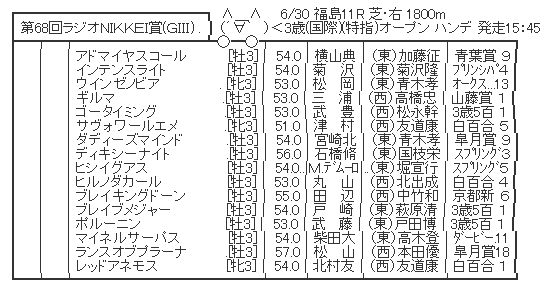 第68回ラジオNIKKEI賞(GIII). 6/30 福島11R 芝・右 1800m
＜3歳(国際)(特指)オープン ハンデ 発走15:45
アドマイヤスコール [牡3] 54.0 横山典 (東)加藤征 青葉賞 9
インテンスライト [牡3] 54.0 菊沢 (東)菊沢隆 プリンシパ 4
ウインゼノビア [牝3] 53.0 松岡 (東)青木孝 オークス..13
ギルマ [牡3] 53.0 三浦 (西)高橋忠 山藤賞 1
ゴータイミング [牡3] 53.0 武豊 (西)松永幹 3歳5百 1
サヴォワールエメ [牝3] 51.0 津村 (西)友道康 白百合 5
ダディーズマインド [牡3] 54.0 宮崎北 (東)青木孝 皐月賞 9
ディキシーナイト [牡3] 56.0 石橋脩 (東)国枝栄 スプリング 3
ヒシイグアス [牡3] 54.0 M.デムーロ (東)堀宣行 スプリング 5
ヒルノダカール [牡3] 53.0 丸山 (西)北出成 白百合 4
ブレイキングドーン [牡3] 55.0 田辺 (西)中竹和 京都新 6
ブレイブメジャー [牡3] 54.0 戸崎 (東)萩原清 3歳5百 1
ポルーニン [牡3] 53.0 武藤 (東)戸田博 3歳5百 1
マイネルサーパス [牡3] 54.0 柴田大 (東)高木登 ダービー.11
ランスオブプラーナ [牡3] 57.0 松山 (西)本田優 皐月賞18
レッドアネモス [牝3] 54.0 北村友 (西)友道康 白百合 1